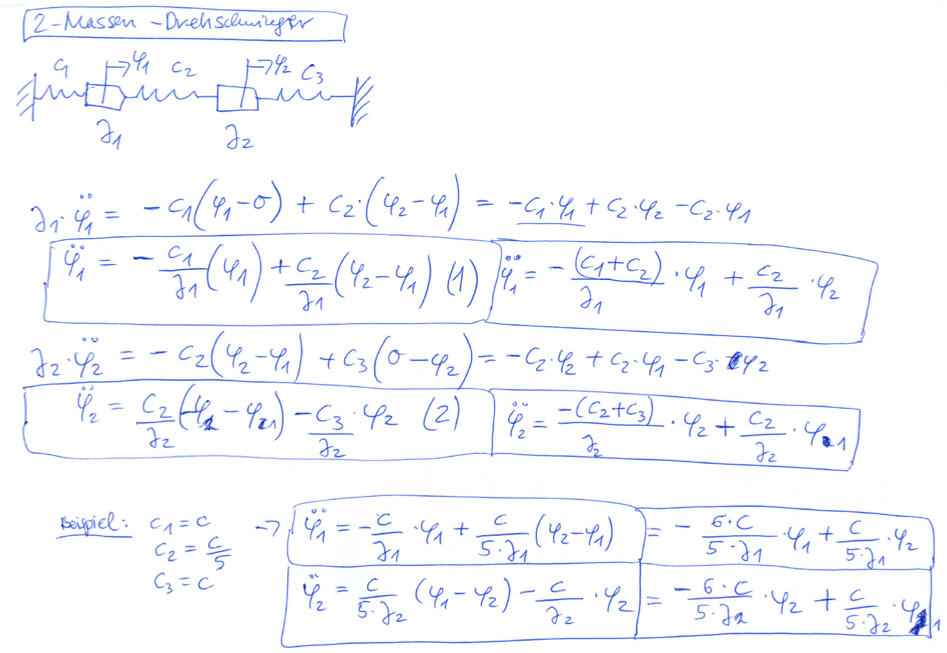 2-Massen-Drehschwinger
c1 φ1 c2 φ2 c3
J1 J2
J1·φ̈1 = -c1(φ1-0) + c2·(φ2-φ1) = -c1·φ1 + c2·φ2 - c2·φ1
φ̈1 = -c1/J1(φ1) + c2/J1(φ2-φ1) (1) φ̈1 = -(c1+c2)/J1·φ1 + c2/J1·φ2
J2·φ̈2 = -c2(φ2-φ1) + c3(0-φ2) = -c2·φ2 + c2·φ1 - c3·φ2
φ̈2 = c2/J2(-φ2-φ1) - c3/J2·φ2 (2) φ̈2 = -(c2+c3)/J2·φ2 + c2/J2·φ1
Beispiel: c1=c → φ̈1 = -c/J1·φ1 + c/(5·J1)(φ2-φ1) = -6·c/(5·J1)·φ1 + c/(5·J1)·φ2
c2=c/5
c3=c φ̈2 = c/(5·J2)(φ1-φ2) - c/J2·φ2 = -6·c/(5·J2)·φ2 + c/(5·J2)·φ1